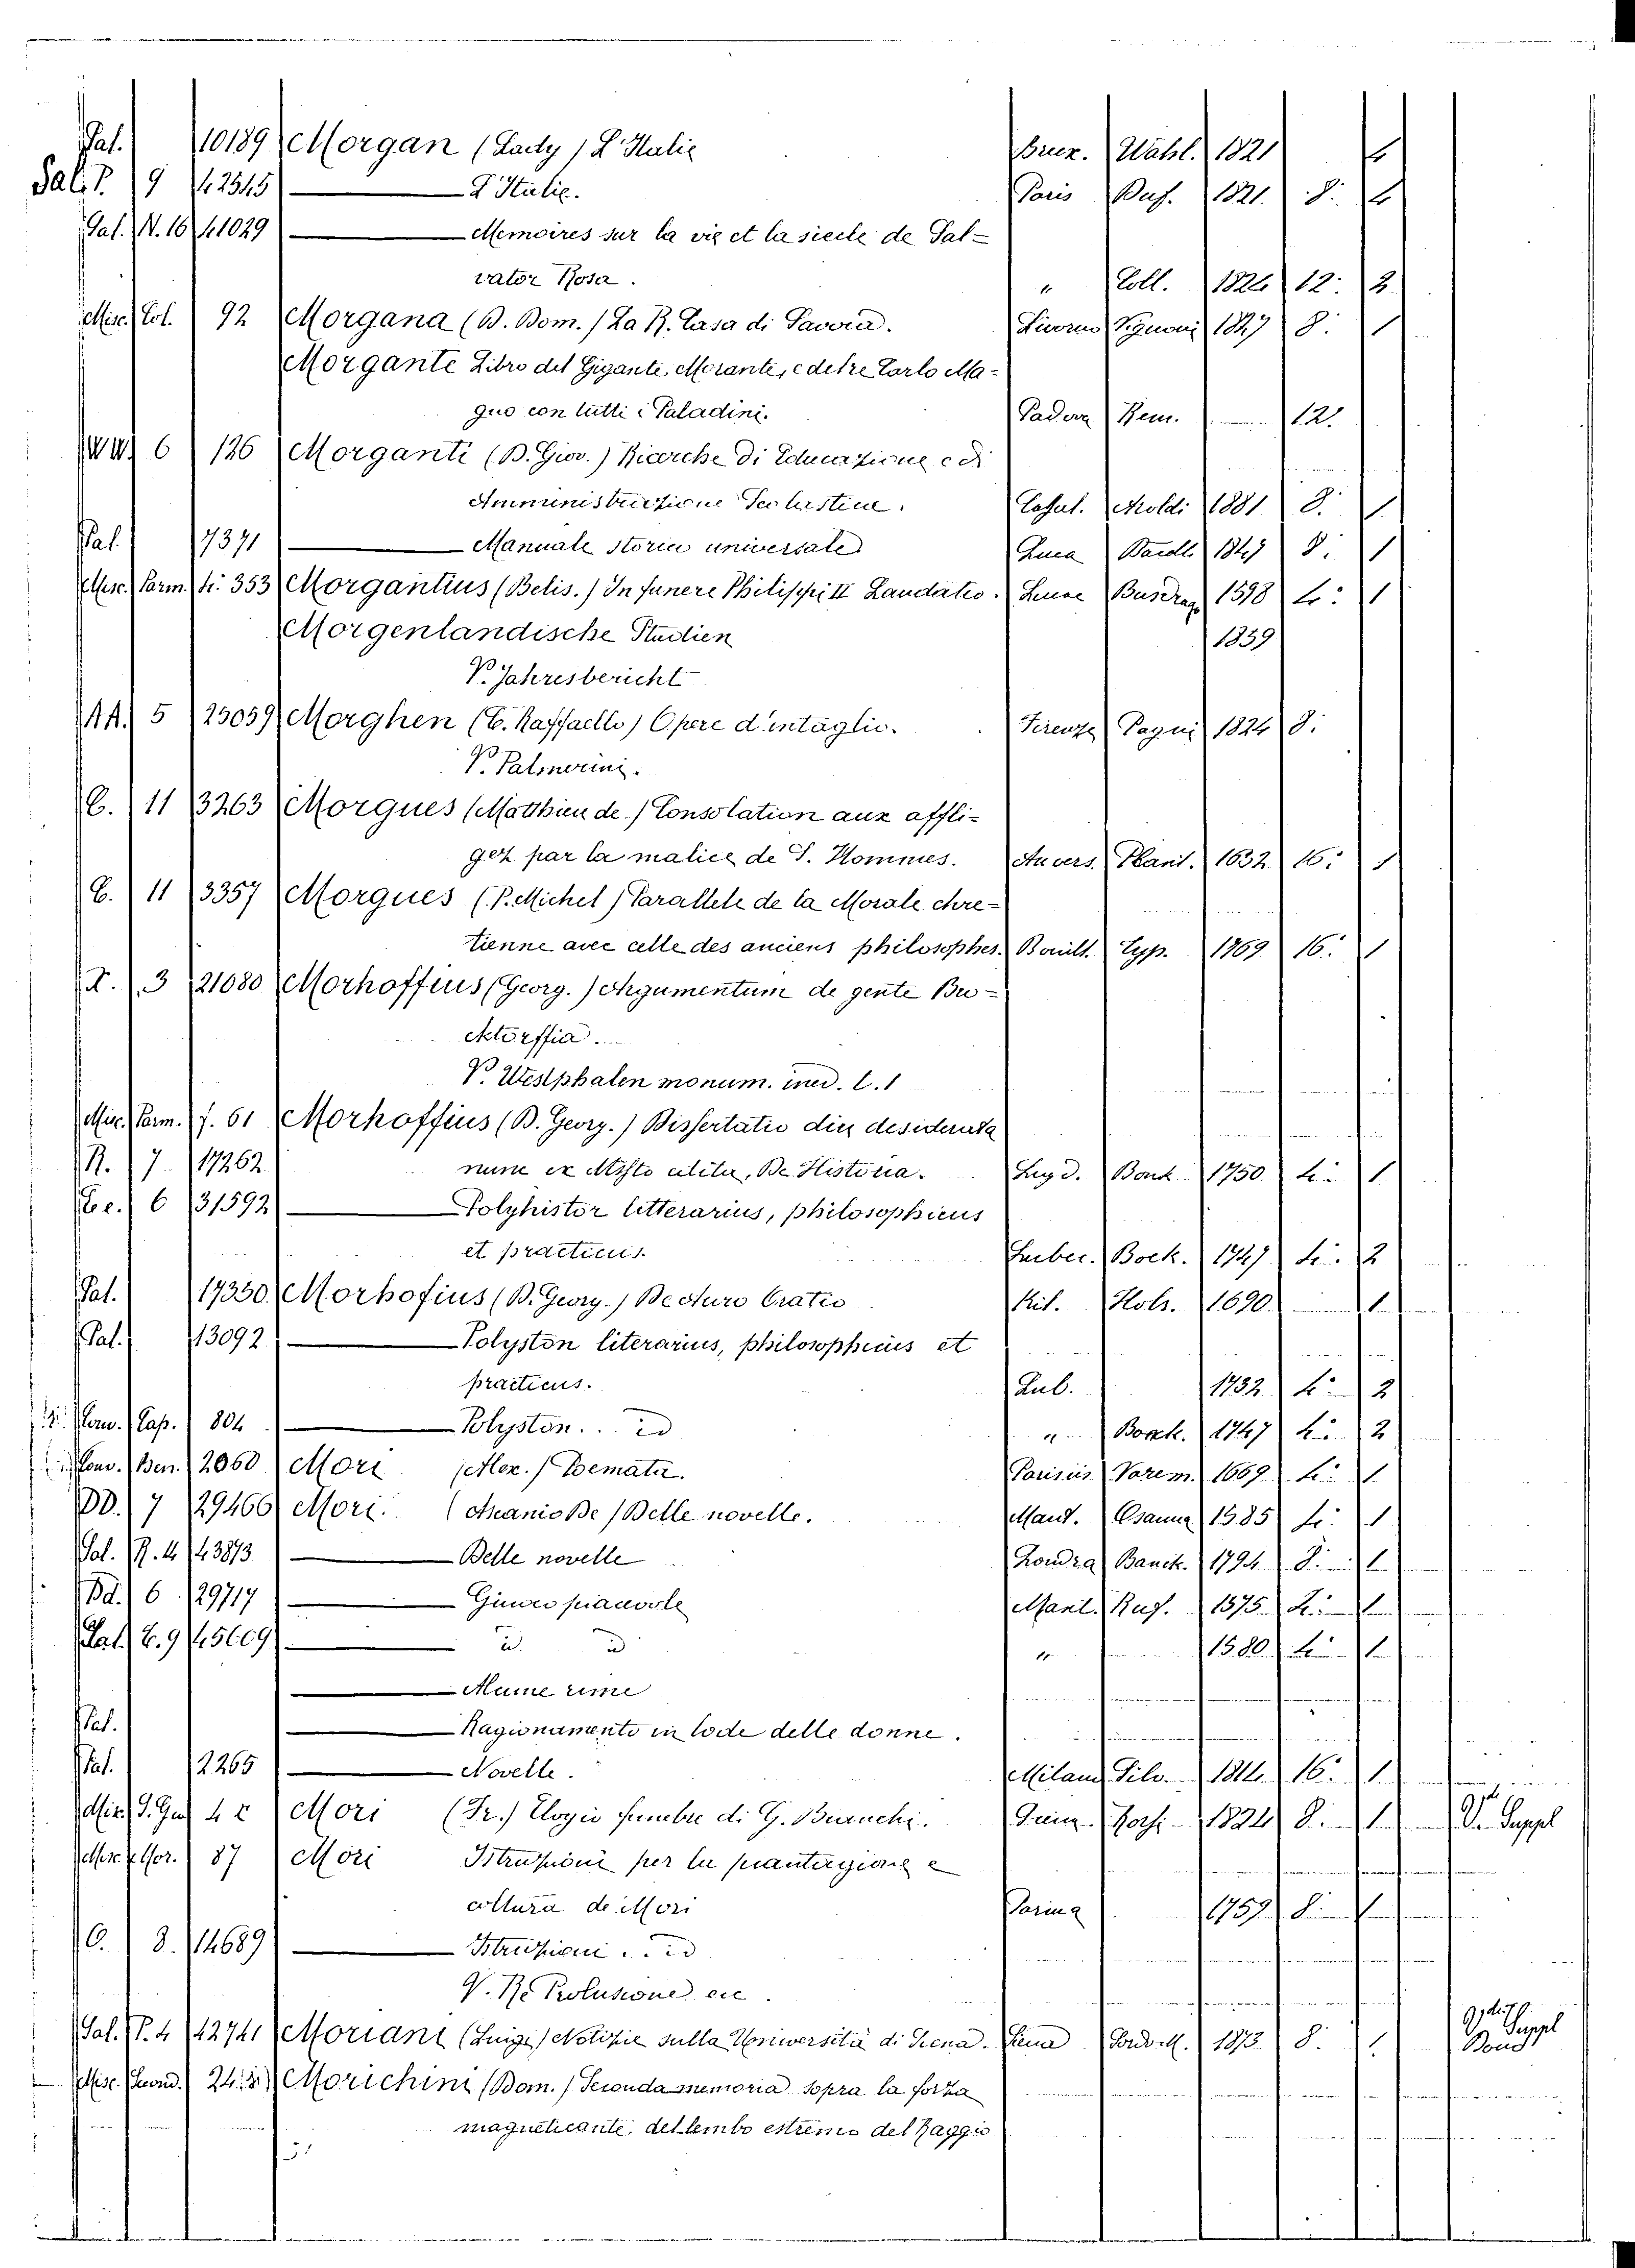 Pal. 10189 Morgan (Lady) L'Italie Brux. Wahl. 1821
Pal. P. 9 42545 — L'Italie. Paris Duf. 1821. 8. 4
Pal. N. 16 41029 — Memoires sur la vie et la siecle de Sal=
vator Rosa. " Coll. 1824 12. 2
Misc. Col. 92 Morgana (D. Dom.) La R. Casa di Savoia. Livorno Vignoni 1847 8. 1
Morgante Libro del Gigante Morante, e del re Carlo Ma=
gno con tutti i Paladini. Padova Rem. 12.
WW 6 126 Morganti (B. Giov.) Ricerche di Educazione e di
Amministrazione Scolastica. Casal. Aroldi 1881 8. 1
Pal. 7371 — Manuale Storia universale Luca Baedl. 1847 8. 1
Misc. Parm. 4. 353 Morgantius (Belis.) In funere Philippi II Laudatio. Lucae Busdrag. 1598 4. 1
Morgenlandische Studien 1859
V. Jahresbericht
AA. 5 25059 Morghen (C. Raffaello) Opere d'intaglio. Firenze Pagni 1824 8.
V. Palmerini.
C. 11 3263 Morgues (Matthieu de.) Consolation aux affli=
gez par la malice de S. Hommes. Anvers. Plant. 1632 16. 1
C. 11 3357 Morgues (P. Michel) Parallele de la Morale chre=
tienne avec celle des anciens philosophes. Bouill. Typ. 1769 16. 1
X. 3 21080 Morhoffius (Georg.) Argumentum de gente Bu=
cktorffia.
V. Westphalen monum. ined. t. 1
Misc. Parm. f. 61 Morhoffius (B. Georg.) Dissertatio diu desiderata
R. 7 17262 nunc ex Msto edita, De Historia. Lug d. Bonk 1750 4. 1
Ee. 6 31592 — Polyhistor litterarius, philosophicus
et practicus. Lubec. Bock. 1747 4. 2
Pal. 17350 Morhofius (B. Georg.) Be Oratio Kil. Hols. 1690 1
Pal. 13092 — Polyston literarius, philosophicus et
practicus. Lub. 1732 4. 2
Conv. Cap. 804 — Polyston... id " Boeck. 1747 4. 2
Conv. Ben. 2060 Mori (Alex.) Poemata. Parisiis Varem. 1669 4. 1
DD. 7 29466 Mori. (Ascanio De) Delle novelle. Mant. Osanna 1585 4. 1
Pal. R. 4 43873 — Delle novelle Londra Banck. 1794 8. 1
Dd. 6 29717 — Giuoco piacevole Mant. Ruf. 1575 4. 1
Pal. C. 9 45609 — id. id " 1580 4. 1
— Alcune rime
Pal. — Ragionamento in lode delle donne.
Pal. 2265 — Novelle. Milano Silv. 1814 16. 1
Misc. Mori (Fr.) Elogio funebre di G. Bianchi. 1824 8. 1 V. Suppl
Misc. Mor. 87 Mori Istruzioni per la piantagione e
coltura dei Mori Parma 1759 8. 1
O. 8. 14689 — Istruzioni... id
V. Re Prolusione ecc.
Pal. P. 4 42741 Moriani (Luigi) Notizie sulla Universitá di Siena. Siena 1873 8. 1 Suppl
Misc. 24. Morichini (Dom.) Seconda memoria sopra la forza
magneticante. del lembo estremo del Raggio